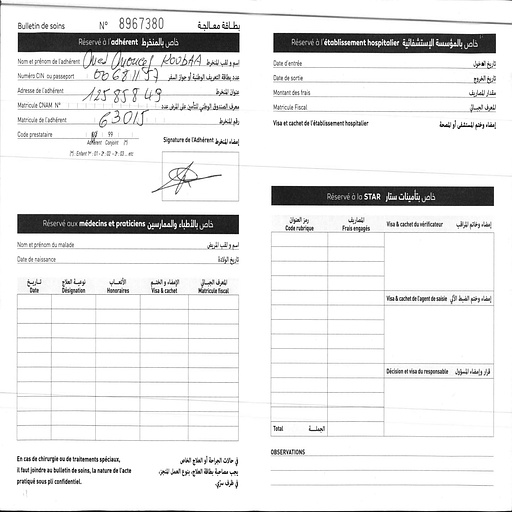 Bulletin de soins N° 8967380 بطاقة معالجة
Réservé à l'adhérent خاص بالمنخرط
Nom et prénom de l'adhérent اسم و لقب المنخرط
Numéro CIN ou passeport عدد بطاقة التعريف الوطنية أو جواز السفر
Adresse de l'adhérent 12585849 عنوان المنخرط
Matricule CNAM N° معرف الصندوق الوطني للتأمين على المرض عدد
Matricule de l'adhérent 63015 رقم المنخرط
Code prestataire 99
Adhérent Conjoint
Signature de l'Adhérent إمضاء المنخرط
Réservé aux médecins et praticiens خاص بالأطباء والممارسين
Nom et prénom du malade اسم و لقب المريض
Date de naissance تاريخ الولادة
تاريخ نوعية العلاج الأتعاب الإمضاء و الختم المعرف الجبائي
Date Désignation Honoraires Visa & cachet Matricule fiscal
En cas de chirurgie ou de traitements spéciaux,
il faut joindre au bulletin de soins, la nature de l'acte
pratiqué sous pli confidentiel.
في حالات الجراحة أو العلاج الخاص
يجب مصاحبة بطاقة العلاج، بنوع العمل المنجز،
في ظرف سري.
Réservé à l'établissement hospitalier خاص بالمؤسسة الإستشفائية
Date d'entrée تاريخ الدخول
Date de sortie تاريخ الخروج
Montant des frais مقدار المصاريف
Matricule Fiscal المعرف الجبائي
Visa et cachet de l'établissement hospitalier إمضاء وختم المستشفى أو المصحة
Réservé à la STAR خاص بتأمينات ستار
رمز العنوان المصاريف
Code rubrique Frais engagés
Visa & cachet du vérificateur إمضاء وختم المراقب
Visa & cachet de l'agent de saisie إمضاء وختم الضبط الآلي
Décision et visa du responsable قرار وإمضاء المسؤول
Total الجملة
OBSERVATIONS